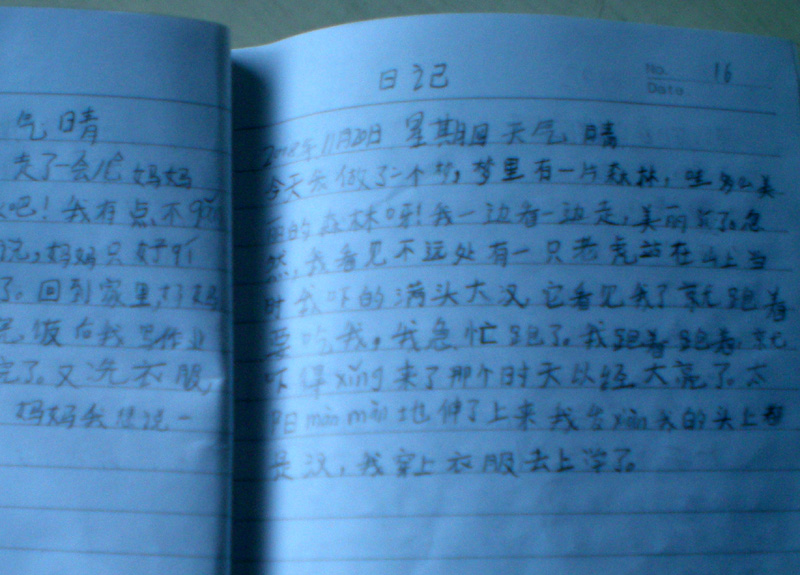 气晴
走了一会儿妈妈
吧！我有点不qíng
说，妈妈只好
了。回到家里，妈
饭后我写作业
完了。又洗衣服
妈妈我想说一
日记
No. 16
Date
年11月20日 星期日 天气 晴
今天我做了一个梦，梦里有一片森林，哇多么美
丽的森林呀！我一边看一边走，美丽极了。忽
然，我看见不远处有一只老虎站在山上当
时我吓的满头大汉，它看见我了就跑着
要吃我。我急忙跑了。我跑着跑着，就
吓得xǐng来了那个时天以经大亮了。太
阳màn màn地伸了上来我发xiàn我的头上都
是汉，我穿上衣服去上学了。